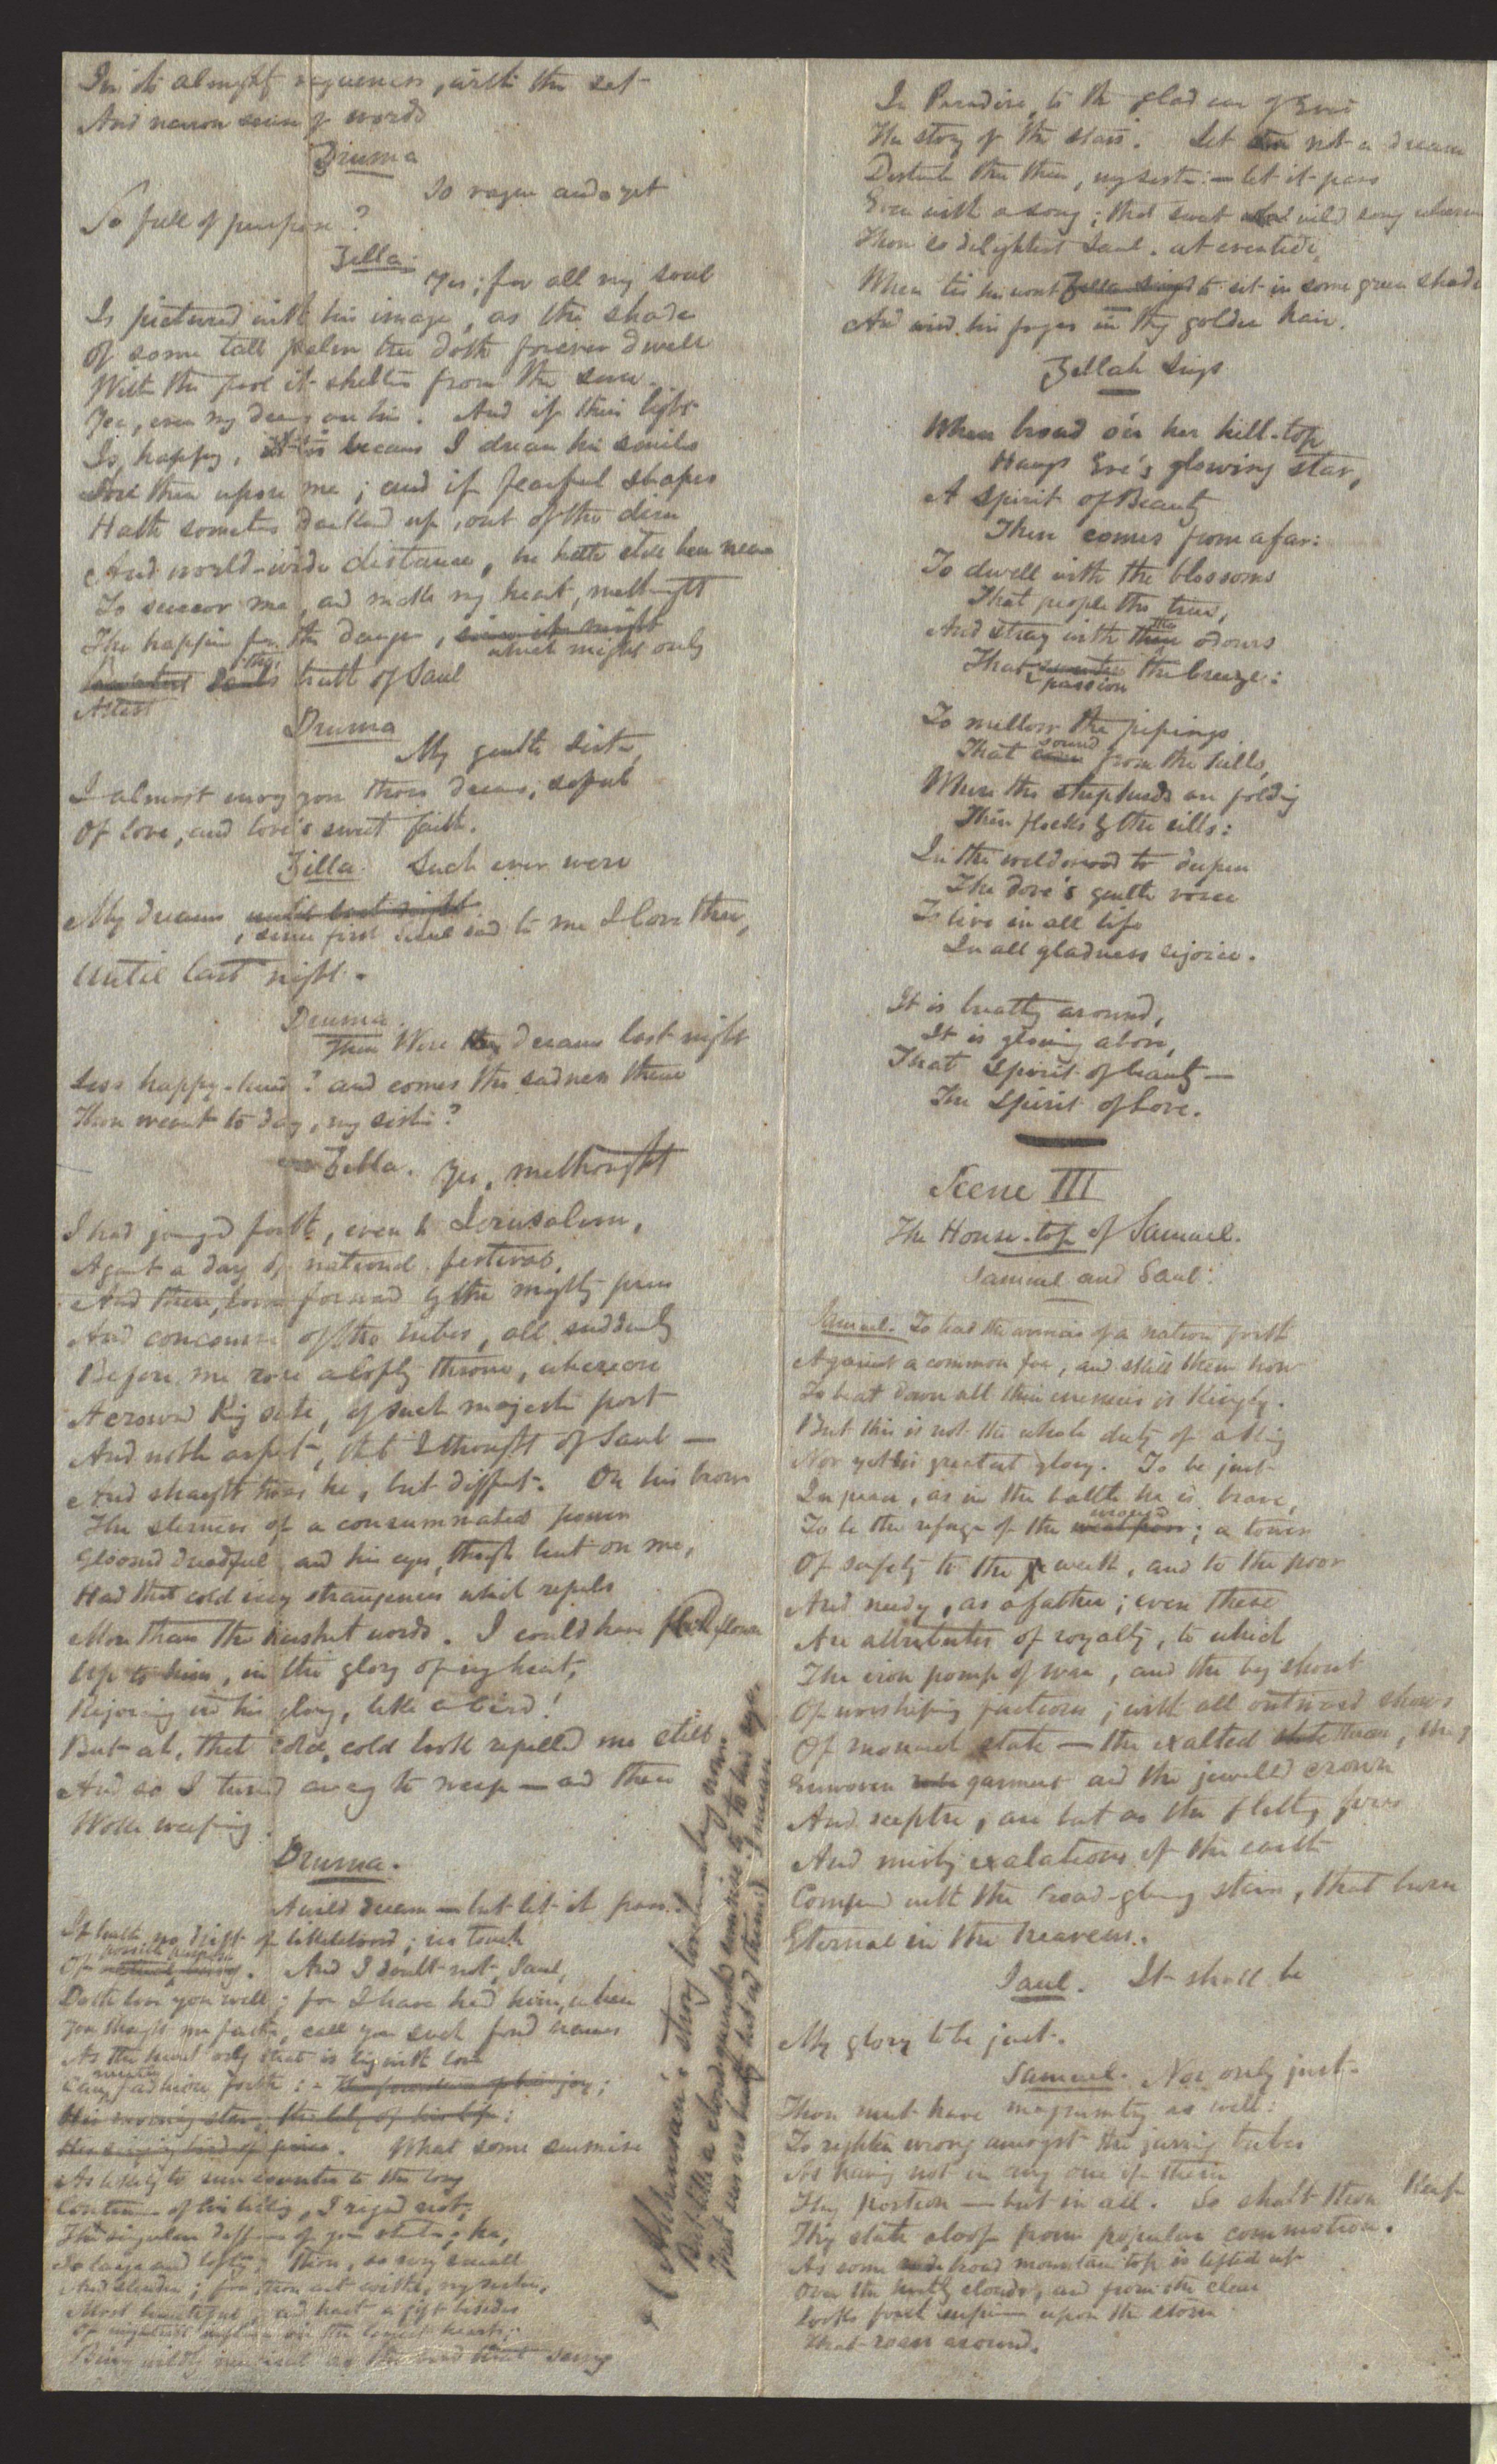 In its almighty vagueness, with the set
And narrow sense of words
Druma
So vague and yet
So full of purpose?
Zella.
Yes; for all my soul
Is pictured with his image, as the shade
Of some tall palm tree doth forever dwell
With the pool it shelters from the sun.
Yea, even my dreams are his. And if their light
Is happy, it is because I dream he smiles
Love then upon me; and if fearful shapes
Hath sometimes darkened up, out of the dim
And world-wide distance, he hath still been near
To succor me, and make my heart, methought
The happier for the danger, since it might
which might only
Attest the truth of Saul
Druma
My gentle sister,
I almost envy you those dreams, so full
Of love, and love's sweet faith.
Zilla. Such ever were
My dreams until last night
, since first Saul said to me I love thee,
Until last night.
Druma.
Then Were thy dreams last night
Less happy-hued? and comes the sadness thence
Thou wearest to day, my sister?
Zilla. Yes, methought
I had journeyed forth, even to Jerusalem,
Against a day of national festival,
And there, borne forward by the mighty press
And concourse of the tribes, all suddenly
Before me rose a lofty throne, whereon
A crowned King sate, of such majestic port
And noble aspect, that I thought of Saul —
And straight 'twas he, but different. On his brow
The sternness of a consummated power
Gloomed dreadful, and his eyes, though bent on me,
Had that cold icy strangeness which repels
More than the harshest words. I could have flown
Up to him, in the glory of my heart,
Rejoicing in his glory, like a bird!
But ah, that cold, cold look repelled me still
And so I turned away to weep — and then
Woke weeping.
Druma.
A wild dream — but let it pass.
It hath no drift of likelihood; no touch
Of natural being. And I doubt not, Saul,
possible purpose
Doth love you well; for I have heard him, when
You thought me farther, call you such fond names
As the heart only that is big with love
Can fashion forth: – The fountain of his joy;
His morning star; the lily of his life;
His singing bird of price. What some surmise
As likely to run counter to the long
Continuance of this liking, I regard not;
The singular difference of your statures, he,
So large and lofty; thou, so very small
And slender; for thou art withal, my sister,
Most beautiful, and hast a gift besides
Of
Being wildly musical as the bird that sang
x (Ahinoam's strong love
But like a cloud
That was no but
In Paradise, to the glad ear of Eve
The story of the stars. Let then not a dream
Disturb thee then, my sister: — let it pass
Even with a song; that sweet wild song wherein
Thou so delightest Saul. at eventide,
When tis his wont Zilla sings to sit in some green shade
And wind his fingers in thy golden hair.
Zillah Sings
When broad o'er her hill-top
Hangs Eve's glowing star,
A Spirit of Beauty
Then comes from afar:
To dwell with the blossoms
That people the trees,
And stray with the odours
That sweeten the breeze:
passion
To mellow the pipings
That come from the hills,
sound
Where the shepherds are folding
Their flocks by the rills:
In the wildwood to deepen
The dove's gentle voice
To live in all life
In all gladness rejoice.
It is breathing around,
It is glowing above,
That Spirit of beauty —
The Spirit of Love.
Scene III
The House-top of Samuel.
Samuel and Saul.
Samuel. To lead the armies of a nation forth
Against a common foe, and skill them how
To beat down all their enemies is Kingly.
But this is not the whole duty of a King
Nor yet his greatest glory. To be just
In peace, as in the battle he is brave,
To be the refuge of the wronged; a tower
Of safety to the weak, and to the poor
And needy, as a father; even these
Are attributes of royalty, to which
The iron pomp of war, and the big shout
Of worshiping factions; with all outward shows
Of monarch state — the exalted throne, the
Enwoven robe garment and the jewelled crown
And sceptre, are but as the fleeting fires
And misty exalations of the earth
Compared with the broad-glowing stars, that burn
Eternal in the heavens.
Saul. It shall be
My glory to be just.
Samuel. Not only just.
Thou must have magnanimity as well:
To righten wrong amongst the jarring tribes
As having not in any one of them
Thy portion — but in all. So shalt thou Keep
Thy state aloof from popular commotion.
As some broad mountain top is lifted up
Over the lowly clouds, and from the clear
Looks forth supreme upon the storm
That roars around.